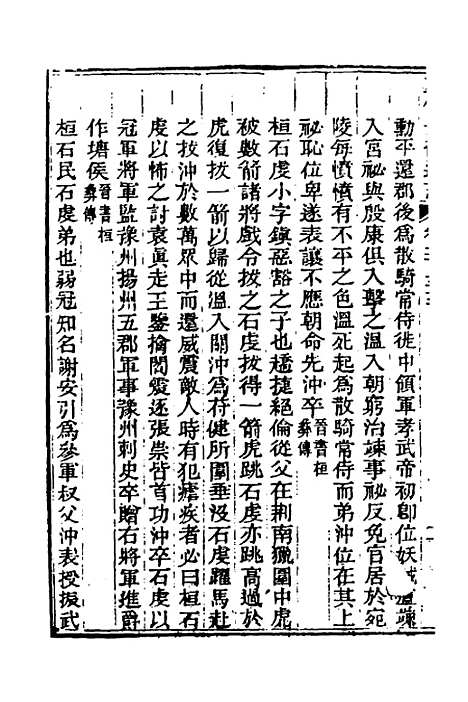 勳平還郡後爲散騎常侍徙中領軍孝武帝初卽位妖
入宮祕與殷康俱入擊之溫入朝窮治竦事祕反免官居於宛
陵每憤憤有不平之色溫死起爲散騎常侍而弟沖位在其上
祕恥位卑遂表讓不應朝命先沖卒晉書桓彝傳
桓石虔小字鎮惡豁之子也趫捷絕倫從父在荆南獵圍中虎
被數箭諸將戲令拔之石虔拔得一箭虎跳石虔亦跳高過於
虎復拔一箭以歸從溫入關沖爲苻健所圍垂没石虔躍馬赴
之拔沖於數萬眾中而還威震敵人時有犯瘧疾者必曰桓石
虔以怖之討袁眞走王鑒擒閻震逐張崇皆首功沖卒石虔以
冠軍將軍監豫州揚州五郡軍事豫州刺史卒贈右將軍進爵
作塘侯晉書桓彝傳
桓石民石虔弟也弱冠知名謝安引爲參軍叔父沖表授振武